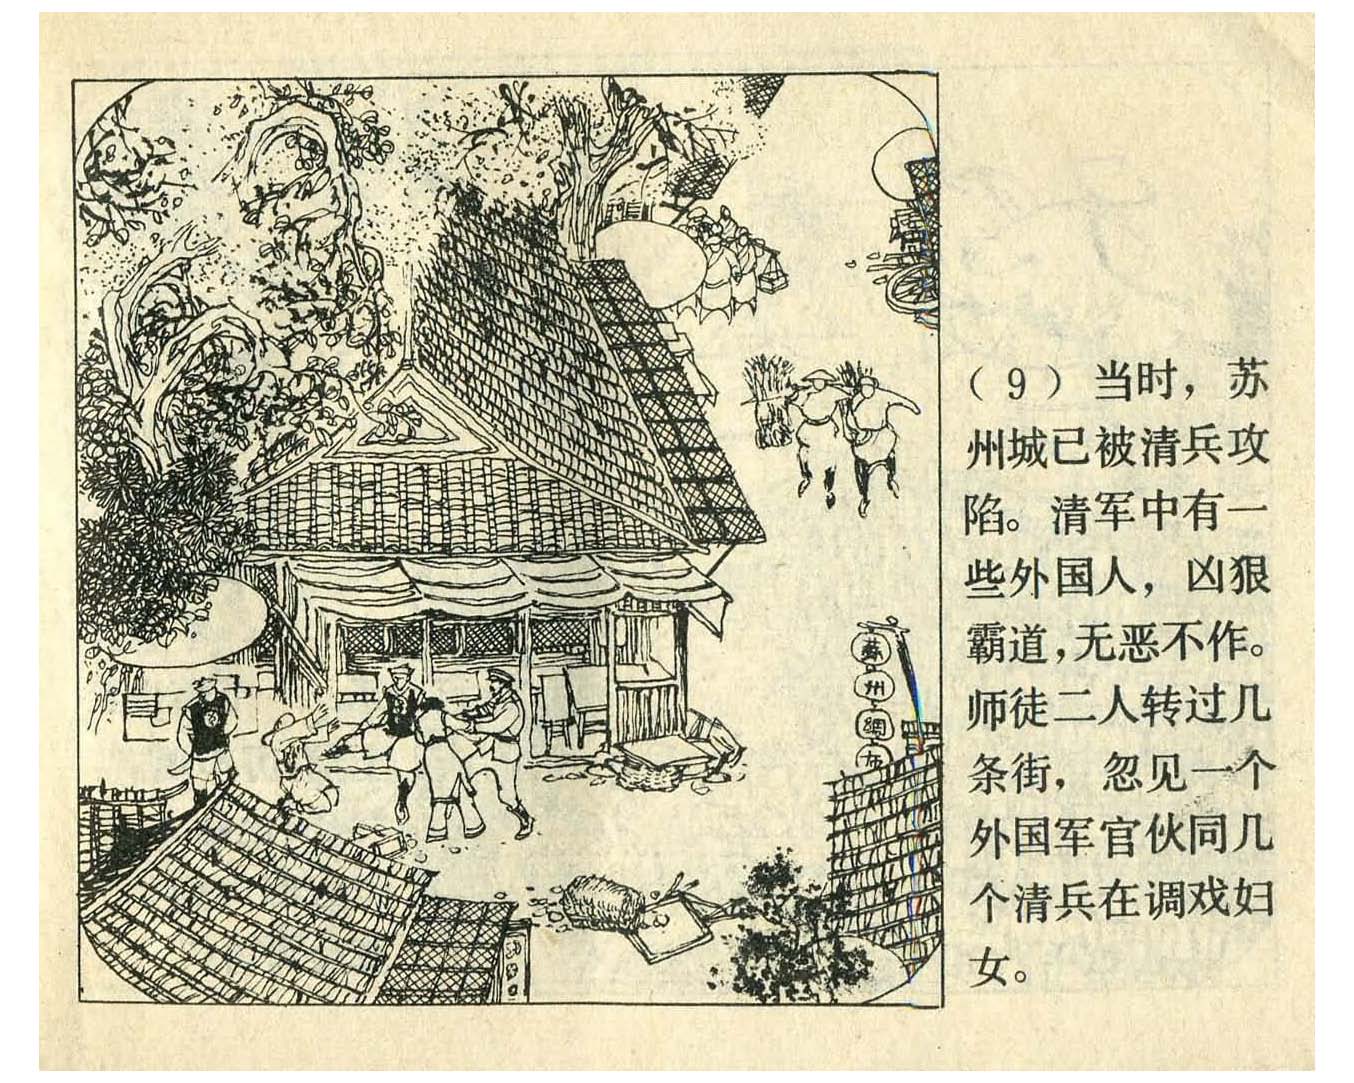 （9）当时，苏
州城已被清兵攻
陷。清军中有一
些外国人，凶狠
霸道，无恶不作。
师徒二人转过几
条街，忽见一个
外国军官伙同几
个清兵在调戏妇
女。
蘇
州
綢
布